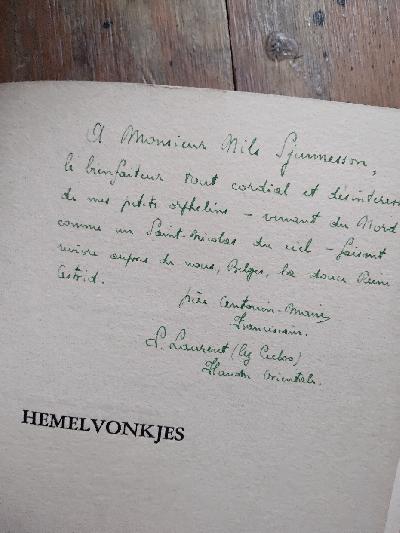 A Monsieur Nils Sjunnesson,
le bienfaiteur tout cordial et désintéress
de mes petits orphelins – venant du Nord
comme un Saint-Nicolas du ciel – faisant
revivre auprès de nous, Belges, la douce Reine
Astrid.
père Antonin-Marie
Franciscain.
S. Laurent (lez Eecloo)
Flandre Orientale.
HEMELVONKJES